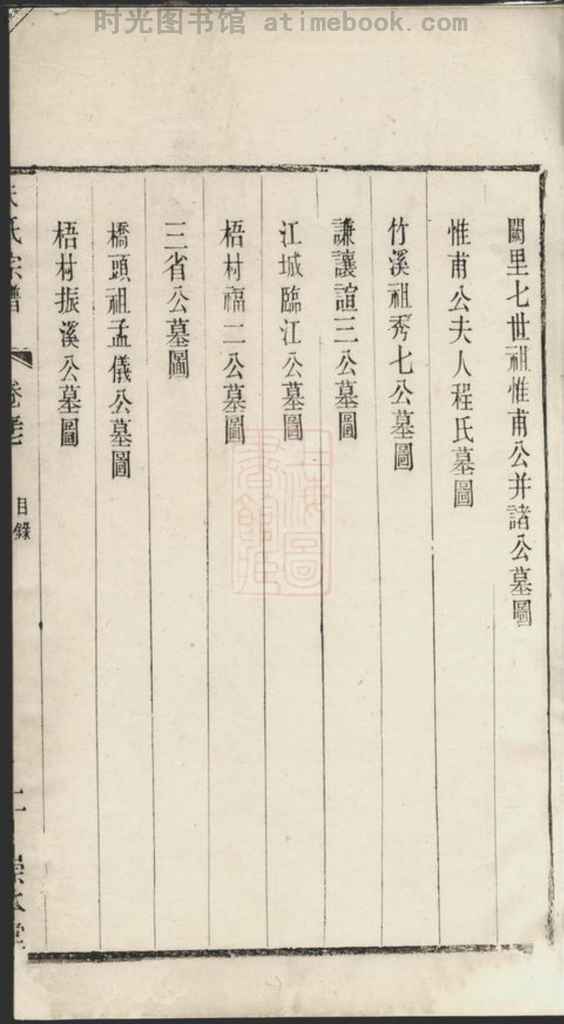 时光图书馆 atimebook.com
闕里七世祖惟甫公并諸公墓圖
惟甫公夫人程氏墓圖
竹溪祖秀七公墓圖
謙讓諠三公墓圖
江城臨江公墓圖
梧村福二公墓圖
三省公墓圖
橋頭祖孟儀公墓圖
梧村振溪公墓圖
氏宗譜
卷
目錄